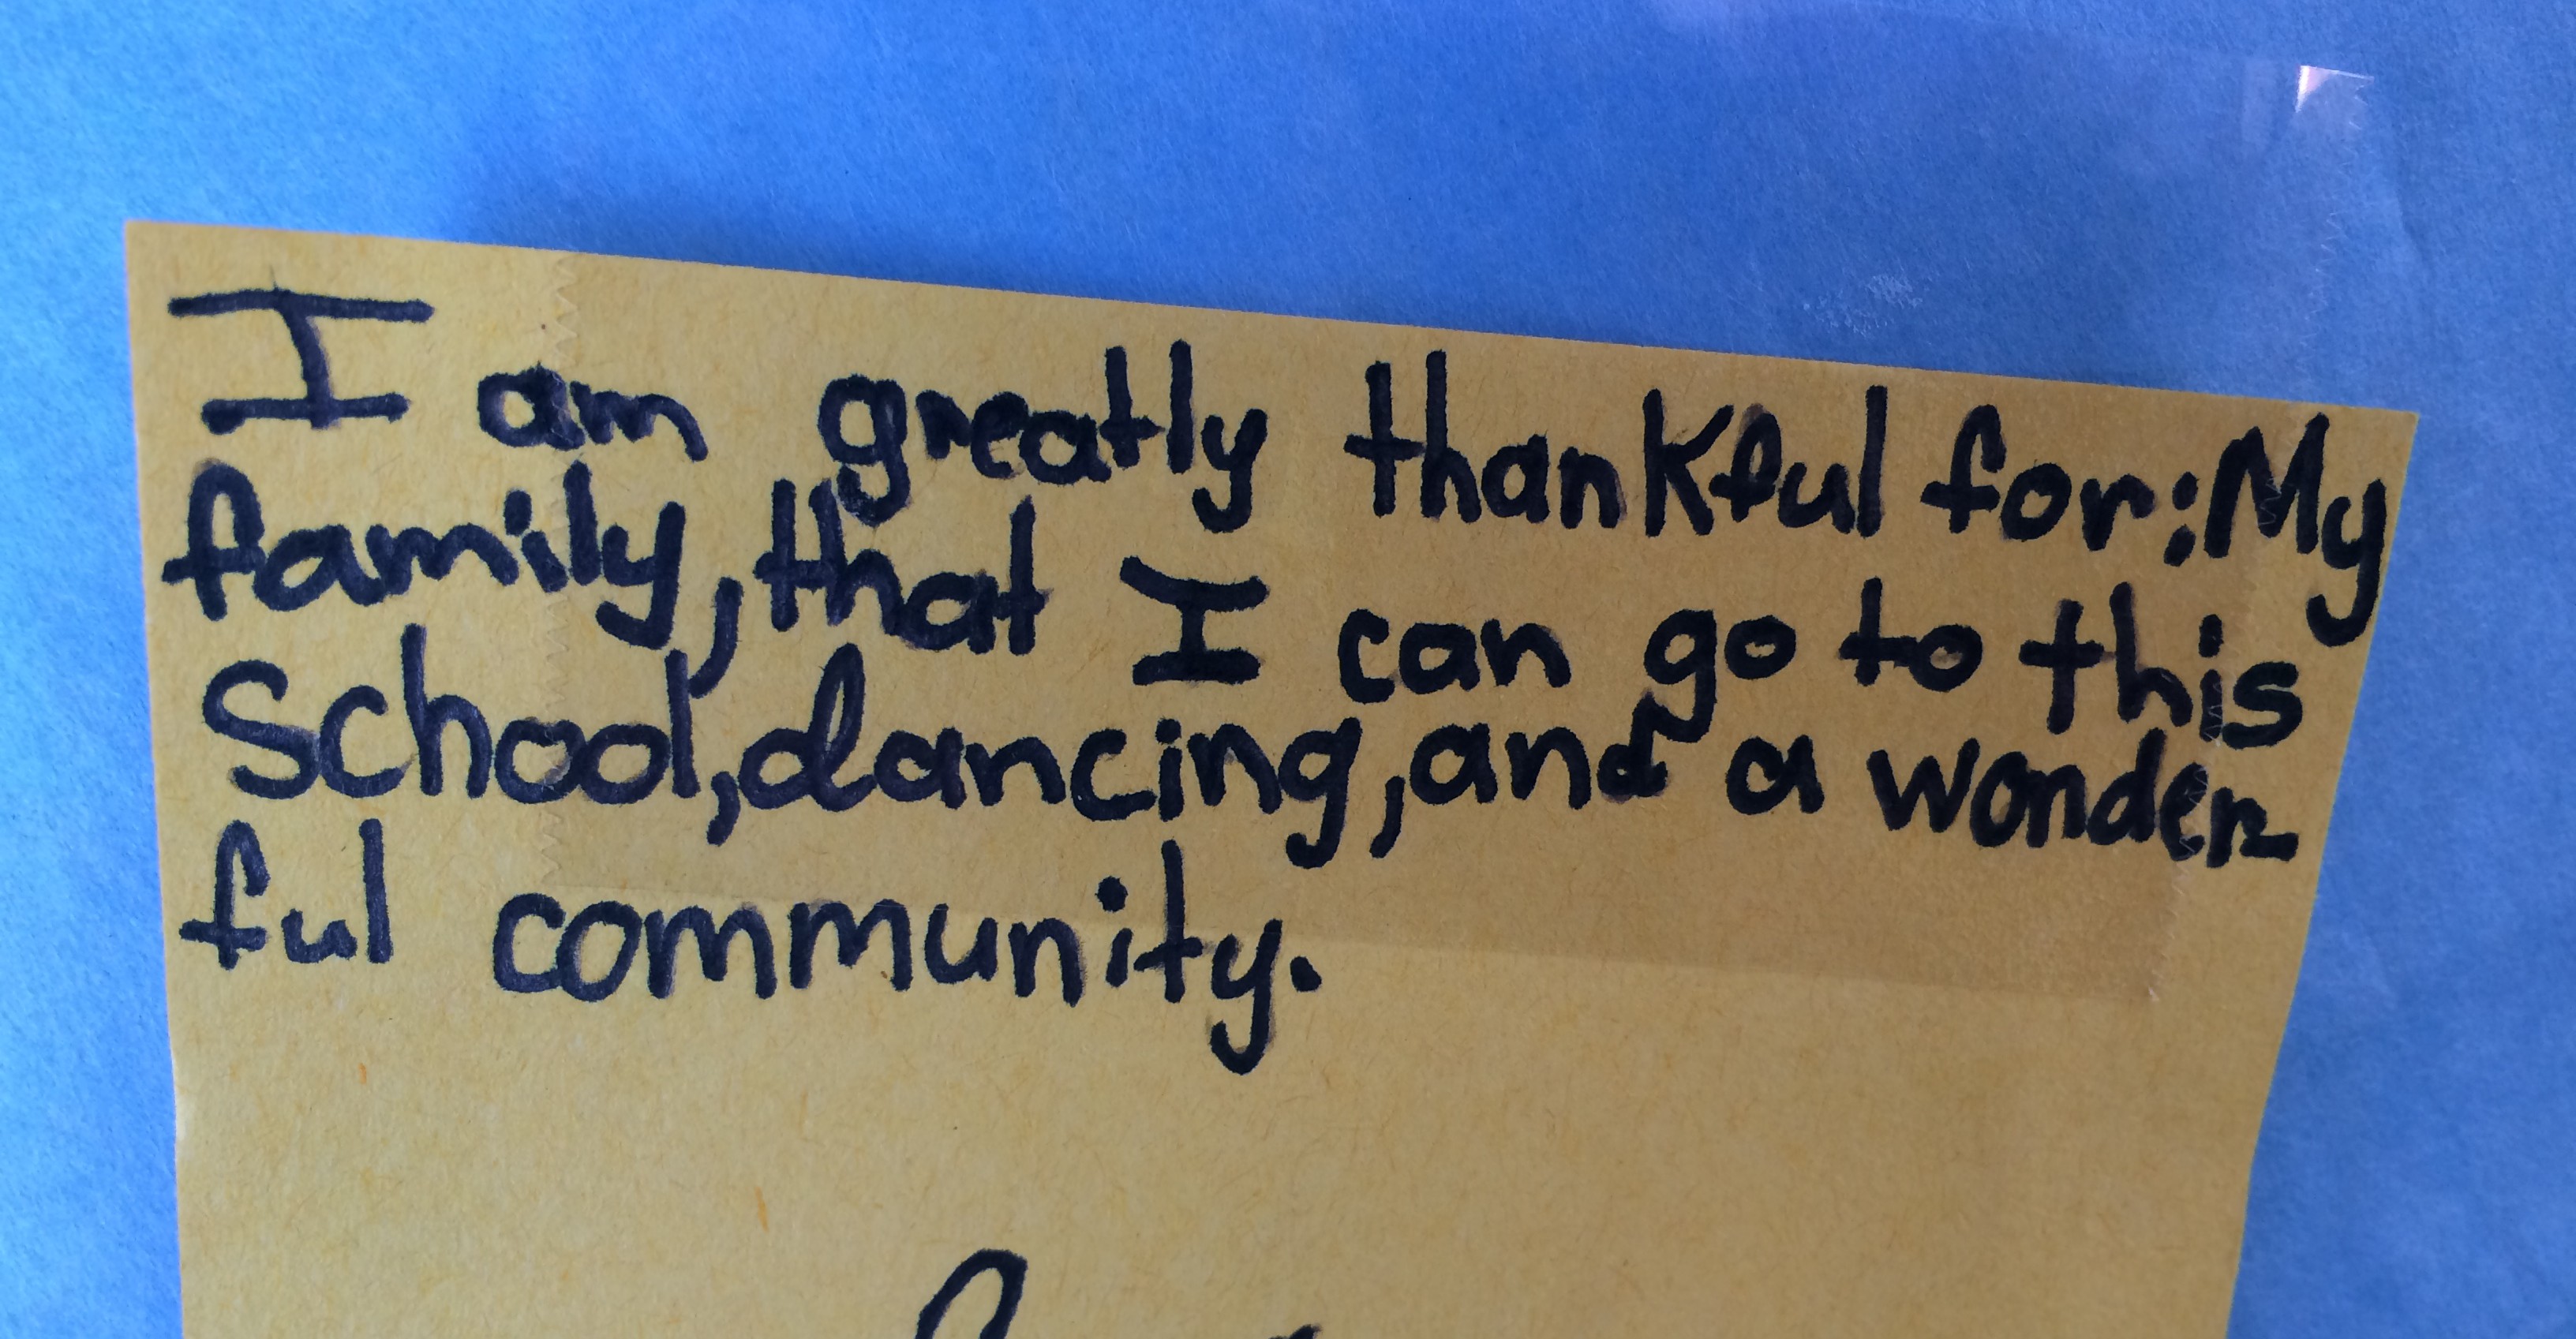 I am greatly thankful for: My
family, that I can go to this
School, dancing, and a wonder-
ful community.